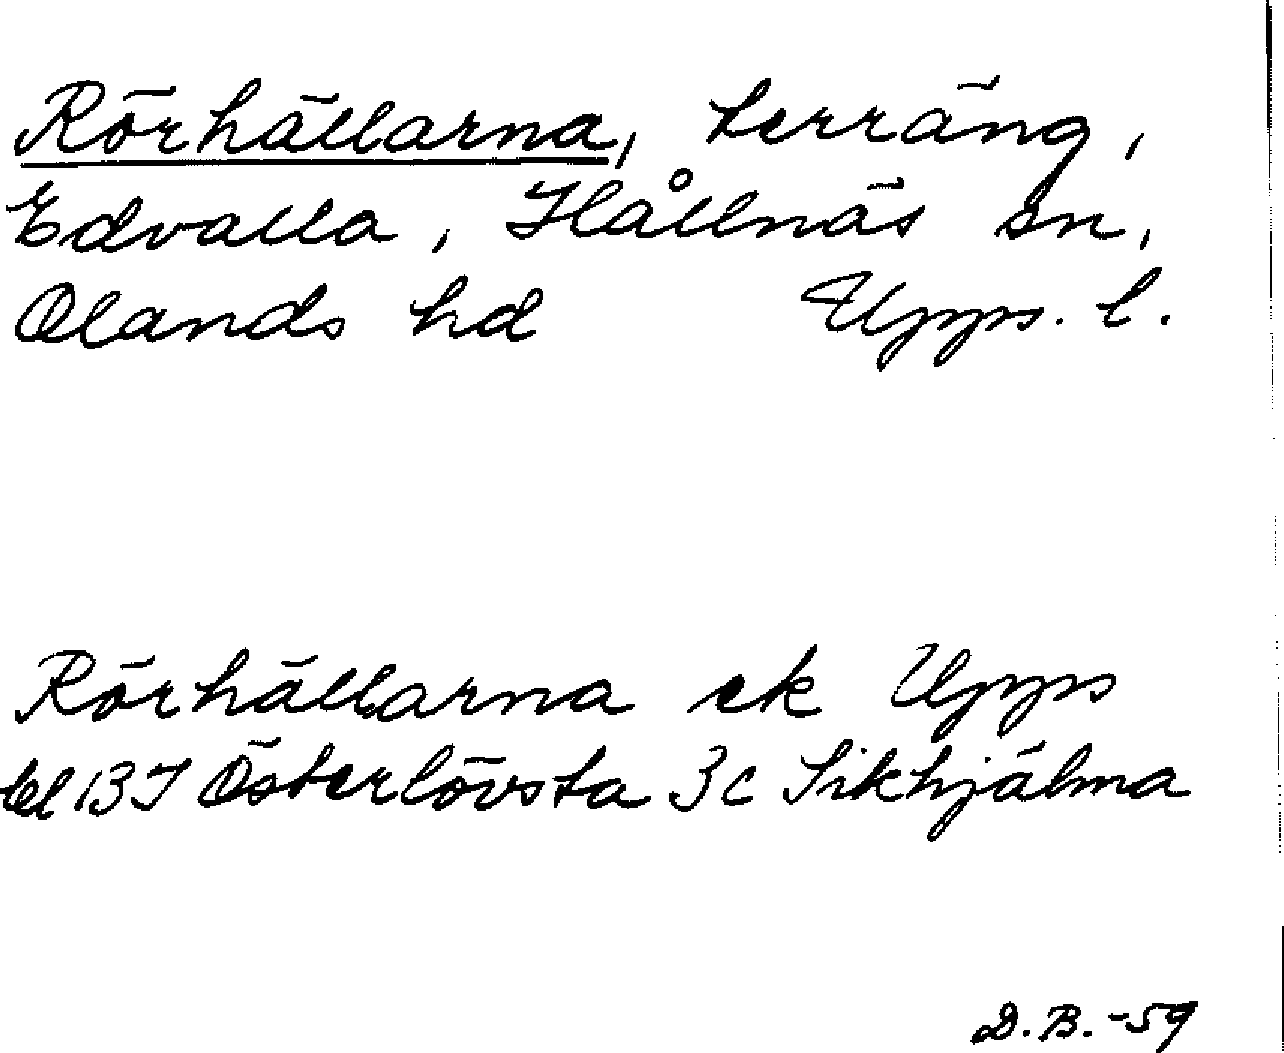 Rörhällarna, terräng,
Edvalla, Hållnäs sn,
Olands hd Upps. l.
Rörhällarna ek Upps
bl 13I Österlövsta 3c Sikhjälma
D.B.-59